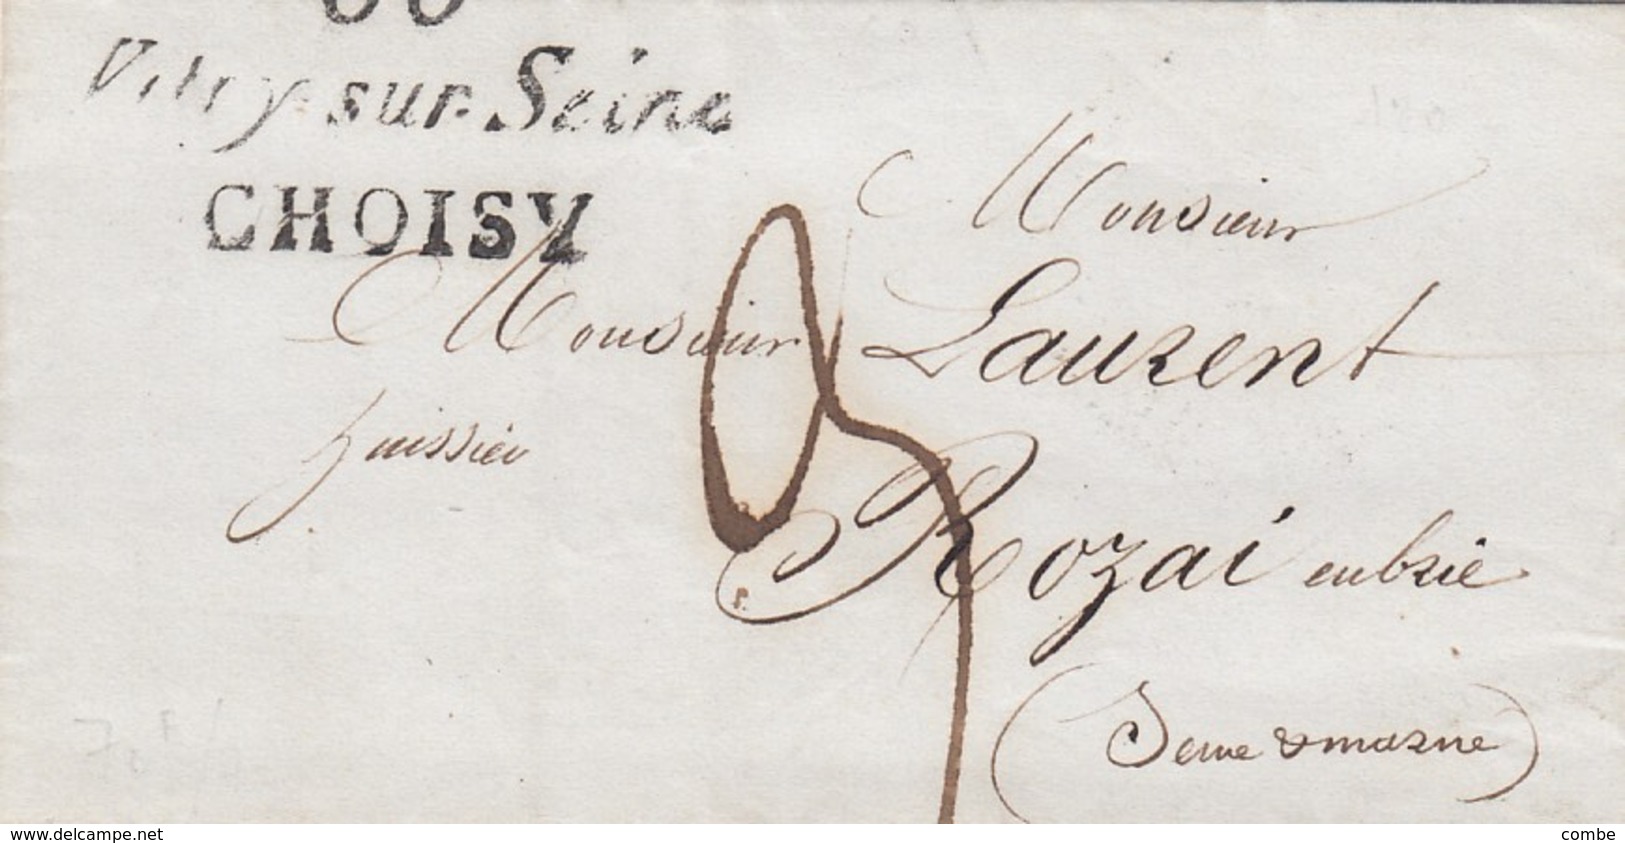 60
Vitry sur Seine
CHOISY
Monsieur
Monsieur Laurent
huissier
Rozai en brie
(Seine & marne)
www.delcampe.net
combe